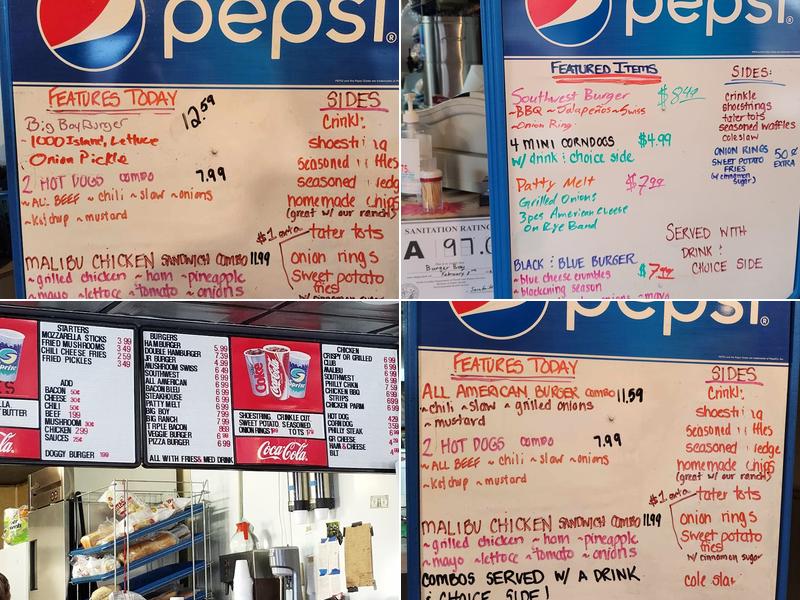 pepsi®
FEATURES TODAY
Big Boy Burger 12.59
~1000 Island, Lettuce
Onion Pickle
2 HOT DOGS combo 7.99
~ALL BEEF ~chili ~slaw ~onions
~Ketchup ~mustard
MALIBU CHICKEN SANDWICH COMBO 11.99
~grilled chicken ~ham ~pineapple
~mayo ~lettuce ~tomato ~onions
SIDES
Crinkl:
shoesti ig
seasoned ffles
seasoned edg
homemade chips
(great w/ our ranch)
$1 extra tater tots
onion rings
Sweet potato
fries
w/ cinnamon sugar
pepsi®
FEATURED ITEMS
Southwest Burger $8.49
~BBQ ~Jalapeños ~Swiss
~Onion Ring
4 MINI CORNDOGS $4.99
W/ drink & choice side
Patty Melt $7.99
Grilled Onions
3pcs American Cheese
On Rye Band
BLACK & BLUE BURGER $7.99
~blue cheese crumbles
~blackening season
SIDES:
Crinkle
shoestrings
tater tots
seasoned waffles
coleslaw
ONION RINGS 50¢
SWEET POTATO EXTRA
FRIES
(w/ cinnamon
sugar)
SERVED WITH
DRINK &
CHOICE SIDE
SANITATION RATING
A 97.0
Burger Boy
STARTERS
MOZZARELLA STICKS 3 99
FRIED MUSHROOMS 3 49
CHILI CHEESE FRIES 2 59
FRIED PICKLES 3 49
ADD
BACON 50¢
CHEESE 30¢
CHILI 50¢
BEEF 199
MUSHROOM 30¢
CHICKEN 299
SAUCES 25¢
DOGGY BURGER 199
BUTTER
Sprite
BURGERS
HAMBURGER 5.99
DOUBLE HAMBURGER 7.39
JR BURGER 4.99
MUSHROOM SWISS 6.49
SOUTHWEST 6.99
ALL AMERICAN 6.99
BACON BLEU 6.99
STEAKHOUSE 6.99
PATTY MELT 6.99
BIG BOY 7.99
BIG RANCH 7.99
TRIPLE BACON 869
VEGGIE BURGER 6 99
PIZZA BURGER 6 99
ALL WITH FRIES & MED DRINK
Coke
Coca-Cola
Sprite
SHOESTRING CRINKLE CUT
SWEET POTATO SEASONED
ONION RINGS TOTS
Coca-Cola
CHICKEN
CRISPY OR GRILLED
CLUB 6 99
MALIBU 6 99
SOUTHWEST 6 99
PHILLY CHKN 7 59
CHICKEN BBQ 6 99
STRIPS 6 99
CHICKEN PARM 6 99
HOT DOG 4 29
CORNDOG 3 59
PHILLY STEAK 6 99
GR CHEESE
HAM & CHEESE
BLT
pepsi®
FEATURES TODAY
ALL AMERICAN BURGER combo 11.59
~chili ~slaw ~grilled onions
~mustard
2 HOT DOGS combo 7.99
~ALL BEEF ~chili ~slaw ~onions
~Ketchup ~mustard
MALIBU CHICKEN SANDWICH COMBO 11.99
~grilled chicken ~ham ~pineapple
~mayo ~lettuce ~tomato ~onions
COMBOS SERVED W/ A DRINK
& CHOICE SIDE!
SIDES
Crinkl:
shoesti ig
seasoned ffles
seasoned edge
homemade chips
(great w/ our ranch)
$1 extra tater tots
onion rings
Sweet potato
fries
w/ cinnamon sugar
cole slaw